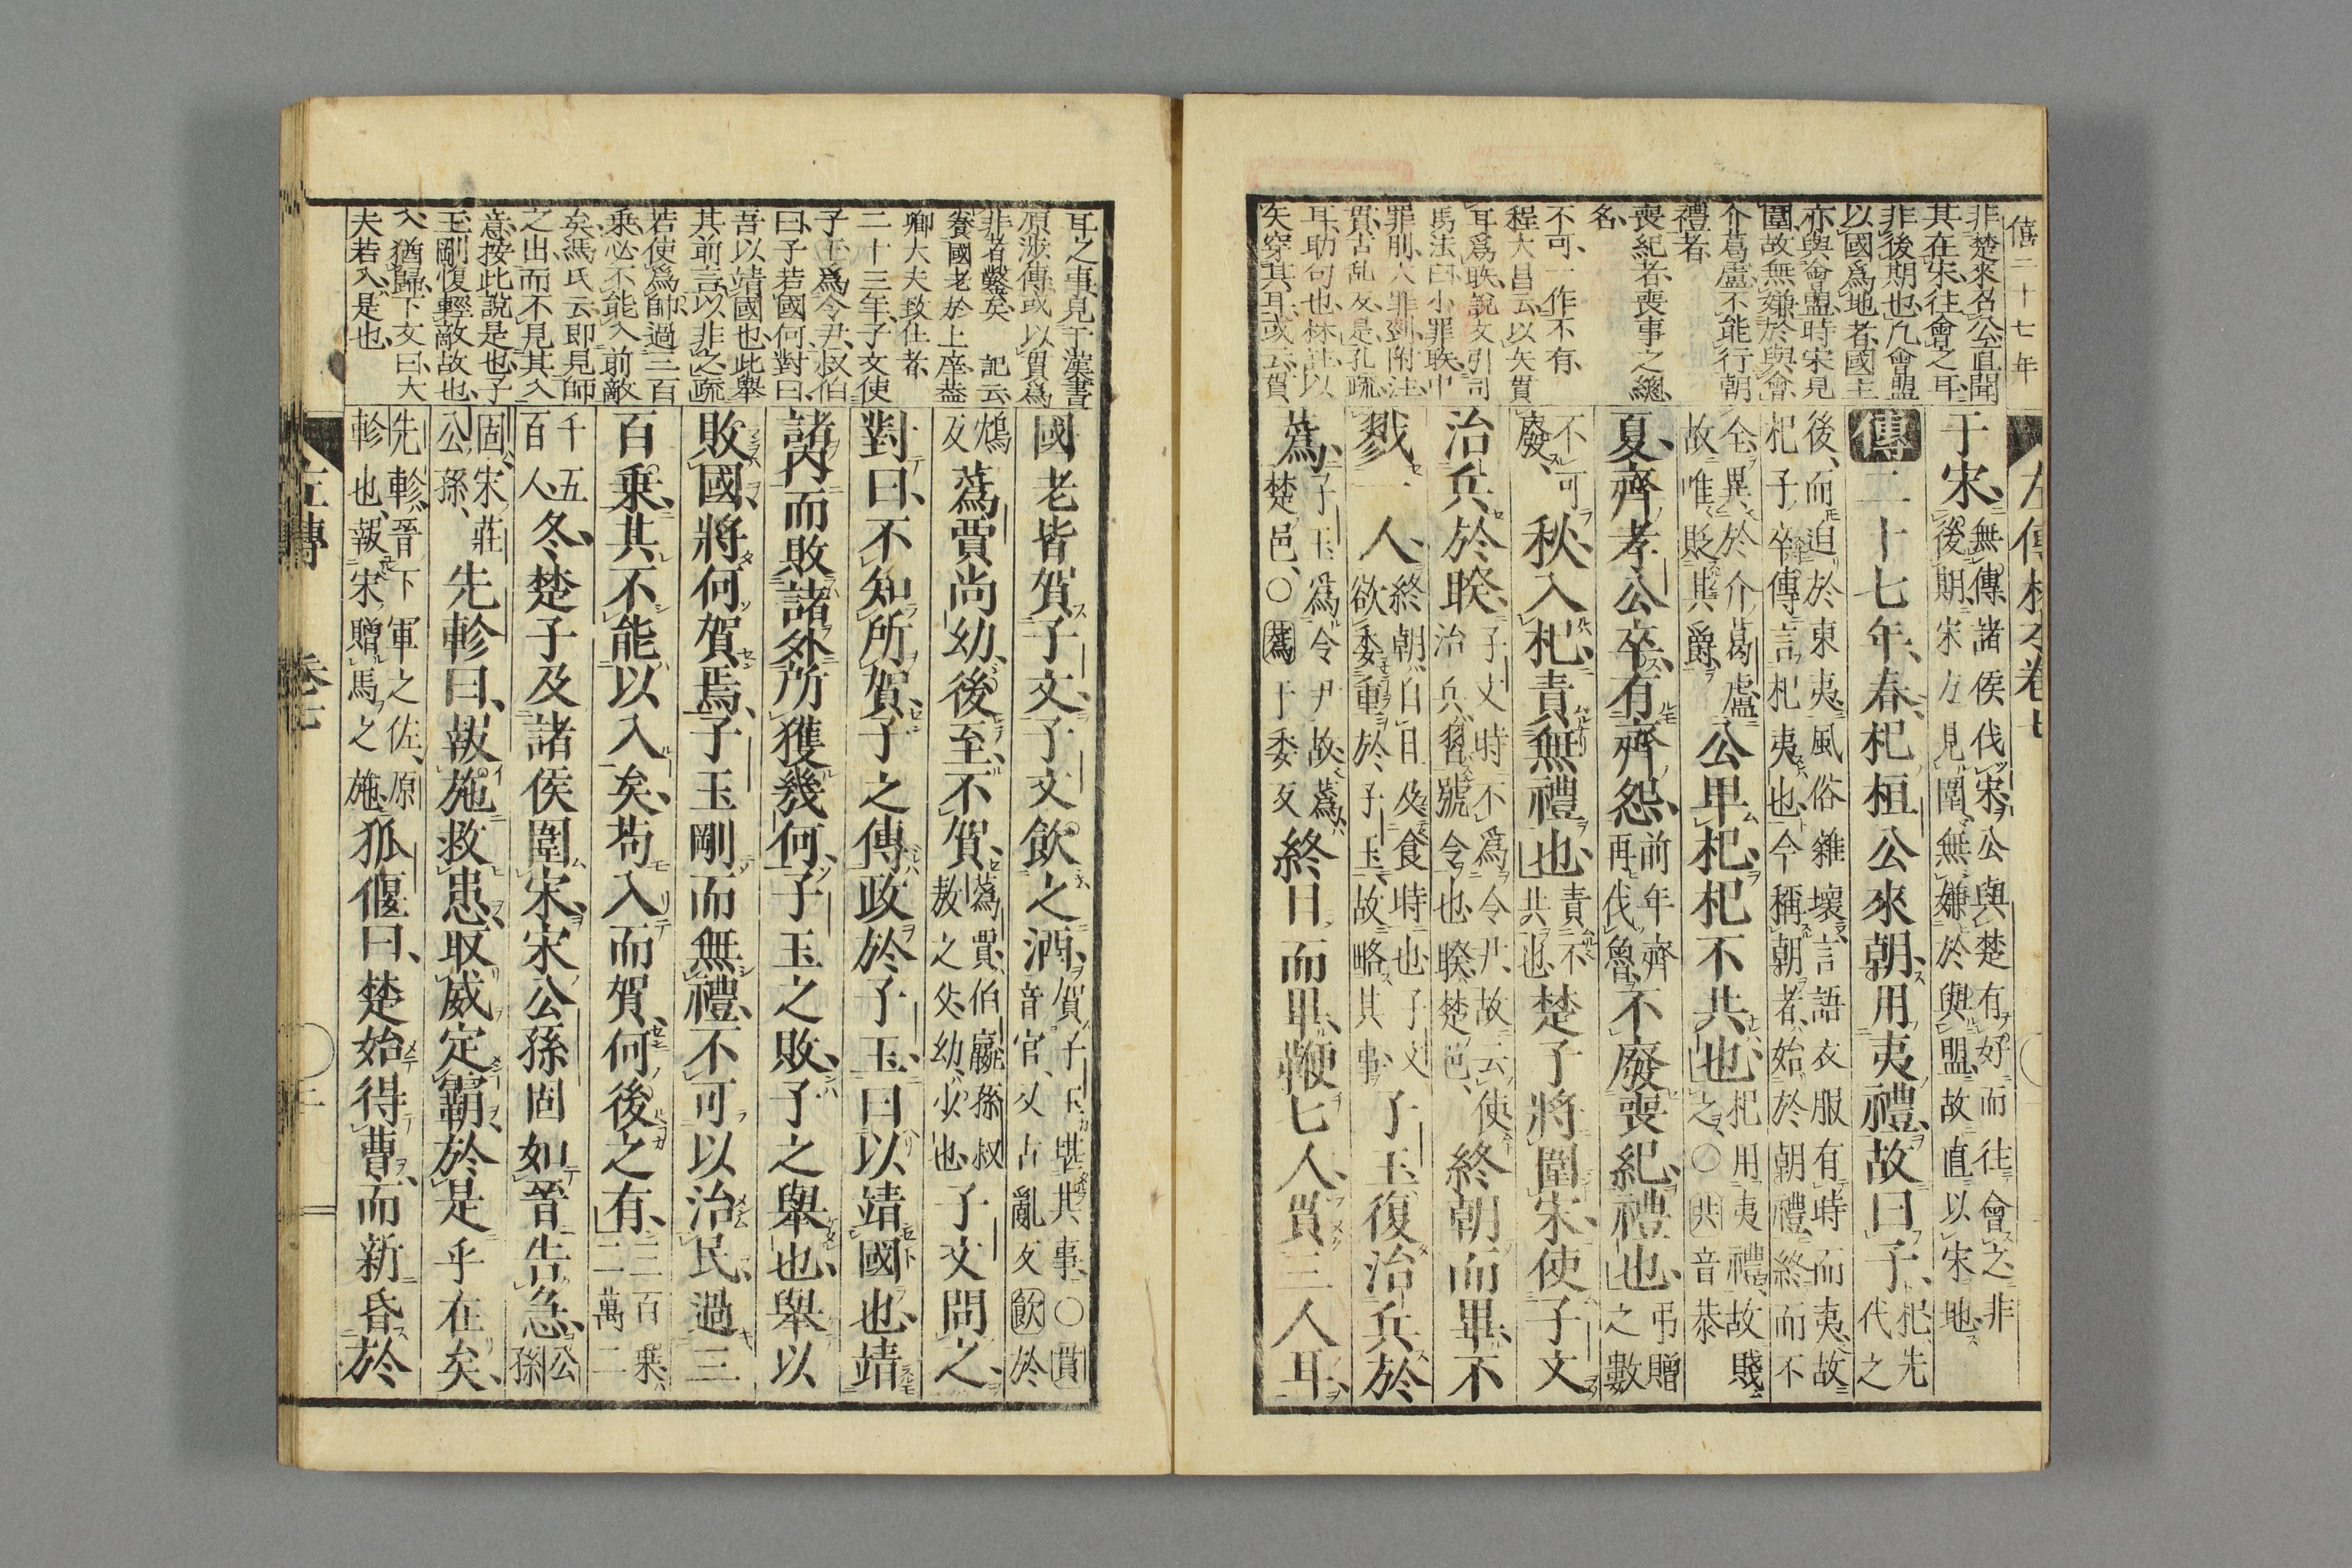 僖二十七年
非楚來召公直聞
其在宋往會之耳
非後期也凡會盟
以國爲地者國主
亦與會盟時宋見
圍故無嫌於與會
介葛盧不能行朝
禮者
喪紀者喪事之總
名
不可一作不有
程大昌云以矢貫
耳爲聅說文引司
馬法曰小罪聅中
罪刖大罪剄附注
貫古乱反是孔疏
耳助句也林註以
矢穿其耳或云貫
于宋無傳諸侯伐宋公與楚有好而往會之非後期宋方見圍無嫌於與盟故直以宋地
傳二十七年春杞桓公來朝用夷禮故曰子杞先代之
後而迫於東夷風俗雜壞言語衣服有時而夷故杞子卒傳言杞夷也今稱朝者始於朝禮終而不
全異於介葛盧故唯貶其爵公卑杞杞不共也杞用夷禮故賤之○共音恭
夏齊孝公卒有齊怨前年齊再伐魯不廢喪紀禮也弔贈之數
不可廢秋入杞責無禮也責不共也楚子將圍宋使子文
治兵於睽子文時不爲令尹故云使治兵習號令也睽楚邑終朝而畢不
戮一人終朝自旦及食時也子文欲委重於子玉故略其事子玉復治兵於
蒍子玉爲令尹故蒍楚邑○蒍于委反終日而畢鞭七人貫三人耳
耳之事見于漢書
原涉傳或以貫爲
非者鑿矣 記云
養國老於上庠蓋
卿大夫致仕者
二十三年子文使
子玉爲令尹叔伯
曰子若國何對曰
吾以靖國也此舉
其前言以非之疏
若使爲帥過三百
乘必不能入前敵
矣馮氏云即見師
之出而不見其入
意按此說是也子
玉剛愎輕敵故也
入猶歸下文曰大
夫若入是也
國老皆賀子文子文飲之酒賀子玉堪其事○貫音官又古亂反飲於
鴆反蒍賈尚幼後至不賀蒍賈伯嬴孫叔敖之父幼少也子文問之
對曰不知所賀子之傳政於子玉曰以靖國也靖
諸內而敗諸外所獲幾何子玉之敗子之舉也舉以
敗國將何賀焉子玉剛而無禮不可以治民過三
百乘其不能以入矣苟入而賀何後之有三百乘二萬二
千五百人冬楚子及諸侯圍宋宋公孫固如晉告急公孫
固宋莊公孫先軫曰報施救患取威定霸於是乎在矣
先軫晉下軍之佐原軫也報宋贈馬之施狐偃曰楚始得曹而新昏於